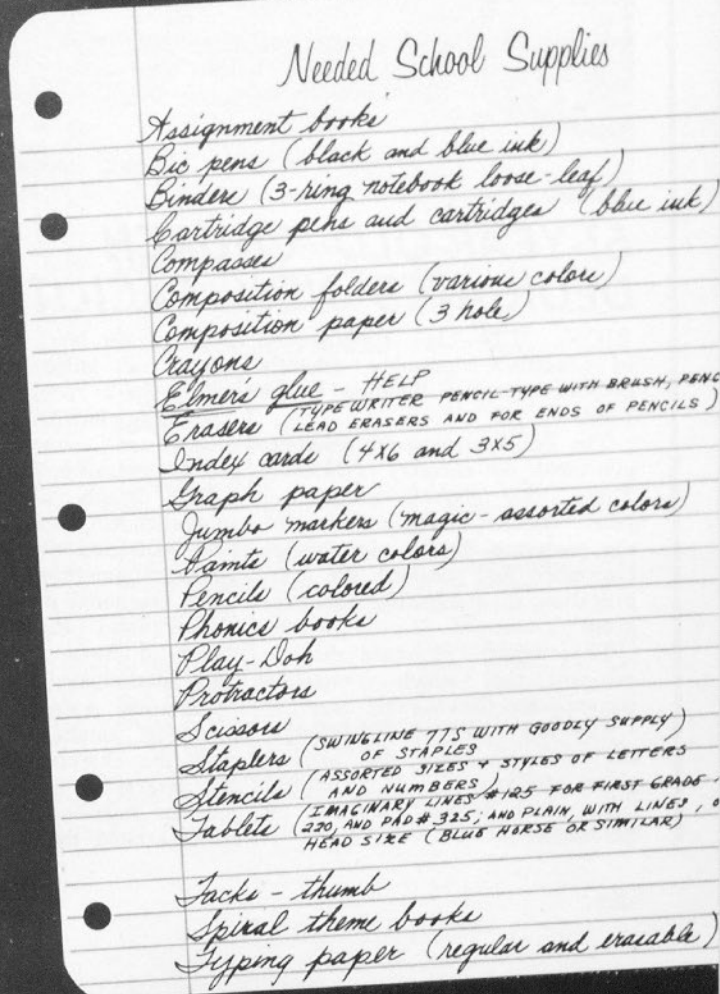 Needed School Supplies
Assignment books
Bic pens (black and blue ink)
Binders (3-ring notebook loose-leaf)
Cartridge pens and cartridges (blue ink)
Compasses
Composition folders (various colors)
Composition paper (3 hole)
Crayons
Elmer's glue - HELP
Erasers (TYPEWRITER PENCIL-TYPE WITH BRUSH, PENC
LEAD ERASERS AND FOR ENDS OF PENCILS)
Index cards (4X6 and 3X5)
Graph paper
Jumbo markers (magic - assorted colors)
Paints (water colors)
Pencils (colored)
Phonics books
Play-Doh
Protractors
Scissors
Staplers (SWINGLINE 77S WITH GOODLY SUPPLY)
OF STAPLES
Stencils (ASSORTED SIZES + STYLES OF LETTERS
AND NUMBERS)
Tablets (IMAGINARY LINES #125 FOR FIRST GRADE,
220, AND PAD #325; AND PLAIN, WITH LINES,
HEAD SIZE (BLUE HORSE OR SIMILAR)
Tacks - thumb
Spiral theme books
Typing paper (regular and erasable)